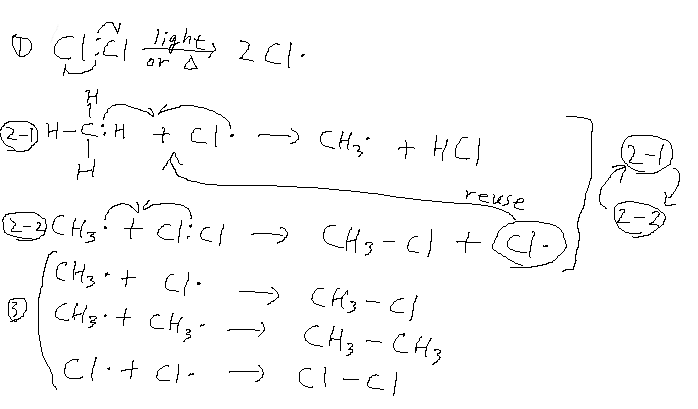 ① Cl:Cl light or △ → 2 Cl·
H
2-1 H-C:H + Cl· → CH₃· + HCl 2-1
H
reuse
2-2 CH₃· + Cl:Cl → CH₃-Cl + Cl· 2-2
③ CH₃· + Cl· → CH₃-Cl
CH₃· + CH₃· → CH₃-CH₃
Cl· + Cl· → Cl-Cl